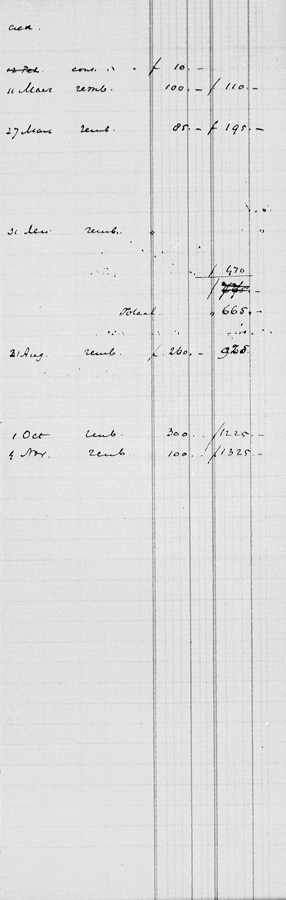 cont. ƒ 10. –
11 Maart remb. 100. – ƒ 110. –
27 Maart remb. 85. – ƒ 195. –
31 remb. " "
ƒ 470
ƒ –
Totaal " 665. –
21 Aug. remb. ƒ 260. – 925
1 Oct remb. 300. – ƒ 1225. –
9 Nov. remb. 100. – ƒ 1325. –